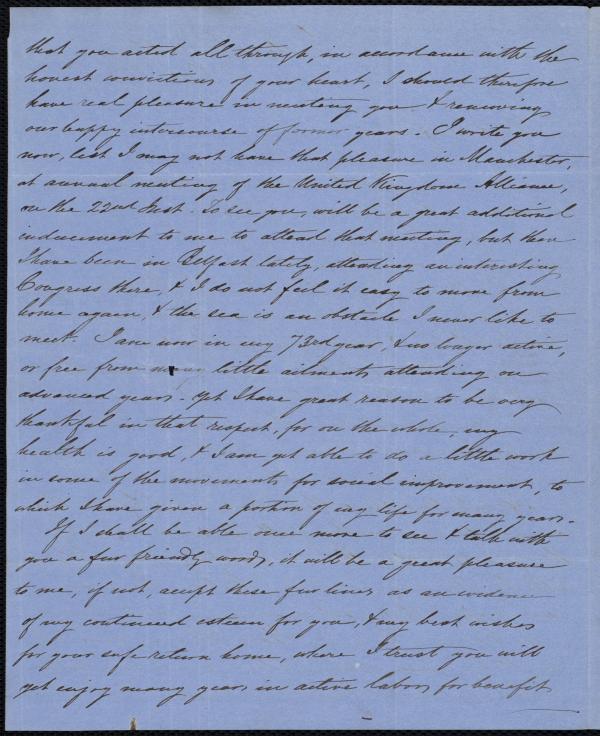 that you acted all through, in accordance with the
honest convictions of your heart, I should therefore
have real pleasure in meeting you & renewing
our happy intercourse of former years. I write you
now, lest I may not have that pleasure in Manchester,
at annual meeting of the United Kingdom Alliance,
on the 22nd Inst. To see you, will be a great additional
inducement to me to attend that meeting, but then
I have been in Belfast lately, attending an interesting
Congress there, & I do not feel it easy to move from
home again, & the sea is an obstacle I never like to
meet. I am now in my 73rd year, & no longer active,
or free from many little ailments attending on
advanced years - yet I have great reason to be very
thankful in that respect, for on the whole, my
health is good, & I am yet able to do a little work
in some of the movements for social improvement, to
which I have given a portion of my life for many years.
If I shall be able once more to see & talk with
you a few friendly words, it will be a great pleasure
to me, if not, accept these few lines as an evidence
of my continued esteem for you, & my best wishes
for your safe return home, where I trust you will
yet enjoy many years in active labors for benefit